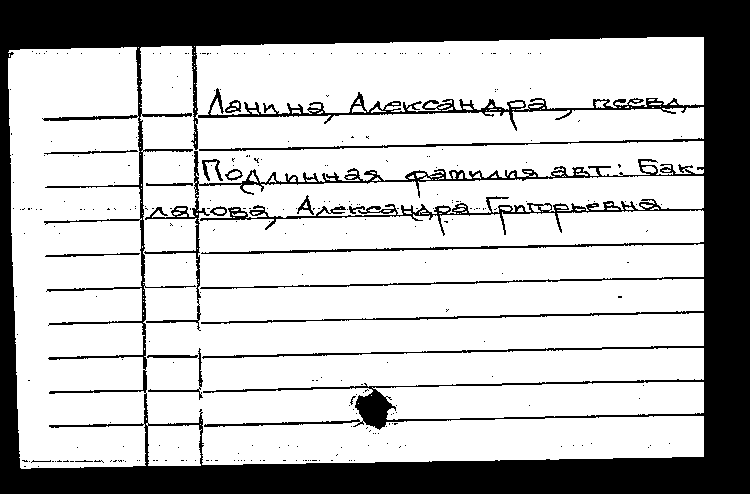 Ланина, Александра, псевд.
Подлинная фамилия авт.: Бак-
ланова, Александра Григорьевна